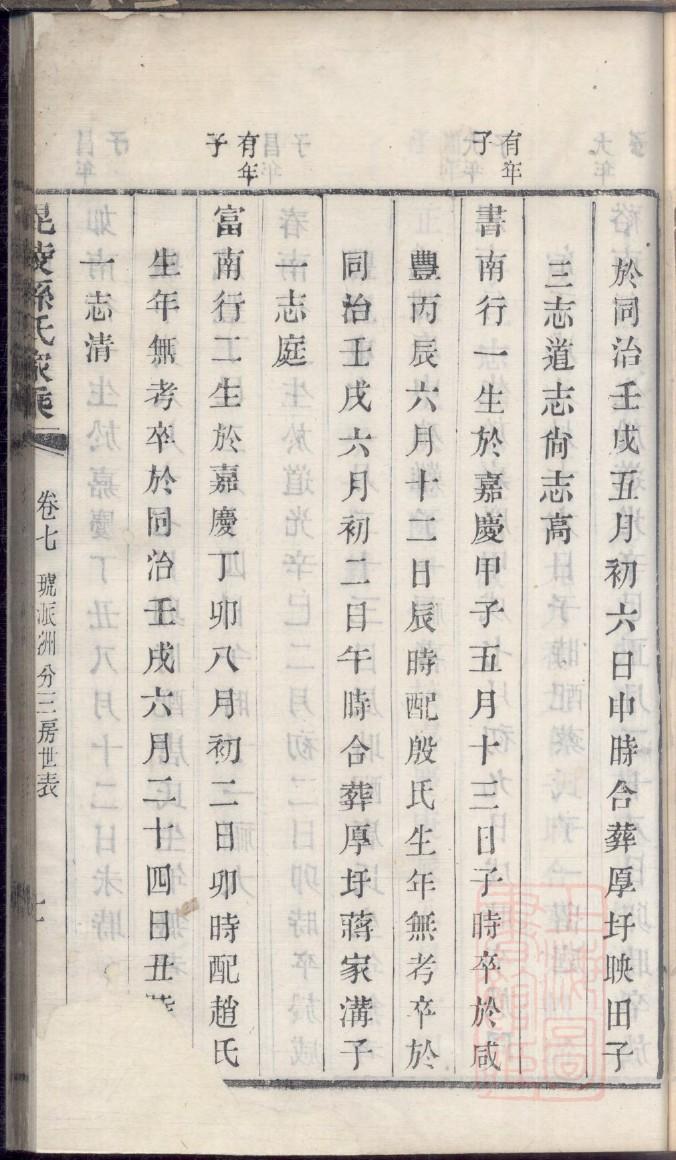 於同治壬戌五月初六日申時合葬厚圩映田子
三志道志尙志高
有年子
書南行一生於嘉慶甲子五月十三日子時卒於咸
豐丙辰六月十二日辰時配殷氏生年無考卒於
同治壬戌六月初二日午時合葬厚圩蔣家溝子
一志庭
有年子
富南行二生於嘉慶丁卯八月初二日卯時配趙氏
生年無考卒於同治壬戌六月二十四日丑時
一志清
毘陵孫氏家乘
卷七
琥派洲分三房世表
七